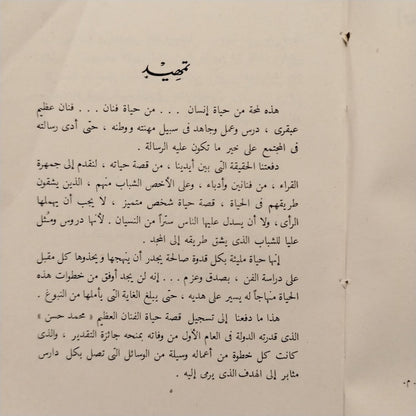 تمهيد
هذه لمحة من حياة إنسان ... من حياة فنان ... فنان عظيم
عبقرى ، درس وعمل وجاهد فى سبيل مهنته ووطنه ، حتى أدى رسالته
فى المجتمع على خير ما تكون عليه الرسالة .
دفعتنا الحقيقة التى بين أيدينا ، من قصة حياته ، لنقدم إلى جمهرة
القراء ، من فنانين وأدباء ، وعلى الأخص الشباب منهم ، الذين يشقون
طريقهم فى الحياة ، قصة حياة شخص متميز ، لا يجب أن يهملها
الرأى، ولا أن يسدل عليها الناس ستراً من النسيان . لأنها دروس ومُثل
عليا للشباب الذى يشق طريقه إلى المجد .
إنها حياة مليئة بكل قدوة صالحة يجدر أن ينهجها ويحذوها كل مقبل
على دراسة الفن ، بصدق وعزم ... إنه لن يجد أوفق من خطوات هذه
الحياة منهاجاً له يسير على هديه ، حتى يبلغ الغاية التى يأملها من النبوغ .
هذا ما دفعنا إلى تسجيل قصة حياة الفنان العظيم « محمد حسن »
الذى قدرته الدولة فى العام الأول من وفاته بمنحه جائزة التقدير ، والذى
كانت كل خطوة من أعماله وسيلة من الوسائل التى تصل بكل دارس
مثابر إلى الهدف الذى يرمى إليه .
٥
م .